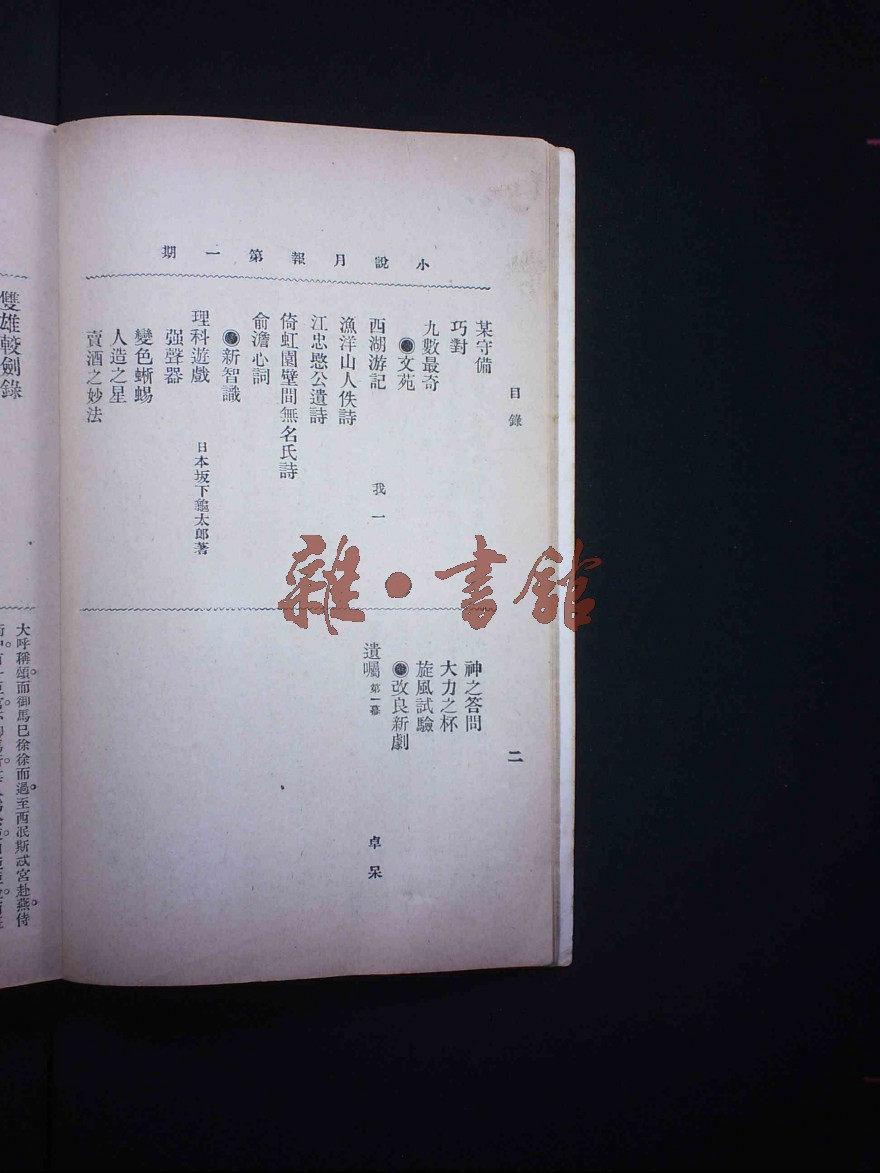 小說月報第一期
目錄
二
某守備
巧對
九數最奇
◉文苑
西湖游記 我一
漁洋山人佚詩
江忠愍公遺詩
倚虹園壁間無名氏詩
俞澹心詞
◉新智識
理科遊戲 日本坂下龜太郎著
强聲器
變色蜥蜴
人造之星
賣酒之妙法
神之答問
大力之杯
旋風試驗
◉改良新劇
遺囑 第一幕 卓呆
雙雄較劍錄
大呼稱頌。而御馬已徐徐而過。至西泯斯忒宮赴燕。侍
雜·書館